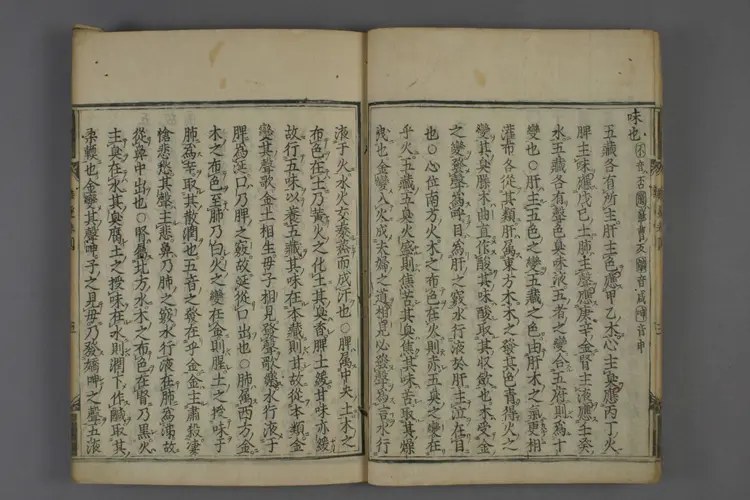 味也
五藏各有所主肝主色應甲乙木心主臭應丙丁火
脾主味應戊己土肺主聲應庚辛金腎主液應壬癸
水五藏各有聲色臭味液五者之變合五府則為十
變也○肝主五色之變五藏之色由肝木之氣更相
灌布各從其類肝屬東方木木之發其色青得火之
變其臭臊木曲直作酸其味酸取其收斂也木受金
之變發聲為呼目為肝之竅水行液於肝主泣在目
也○心位南方火木之布色在火則赤五臭之變在
乎火五藏五臭火盛則焦苦其臭焦其味苦取其燥
洩也金變入火成夫婦之道相見必發聲為言水行
液于火水火交泰蒸而成汗也○脾屬中央土木之
布色在土乃黃火之化土其臭香脾土緩其味亦緩
故行五味以養五藏其味在本藏則甘故從本類金
變其聲歌金土相生母子相見發聲歌水行液于
脾為涎口乃脾之竅故涎從口出也○肺屬西方金
木之布色至肺乃白火之變在金則腥土之授味于
肺為辛取其散潤也五音之發在乎金金主肅殺悽
愴悲愁其聲主悲鼻乃肺之竅水行液在肺為涕故
從鼻中出也○腎屬北方水木之布色在腎乃黑火
主臭在水其臭腐土之授味在水則潤下作鹹取其
柔軟也金變其聲呻子之見母乃發嬌呻之聲五液